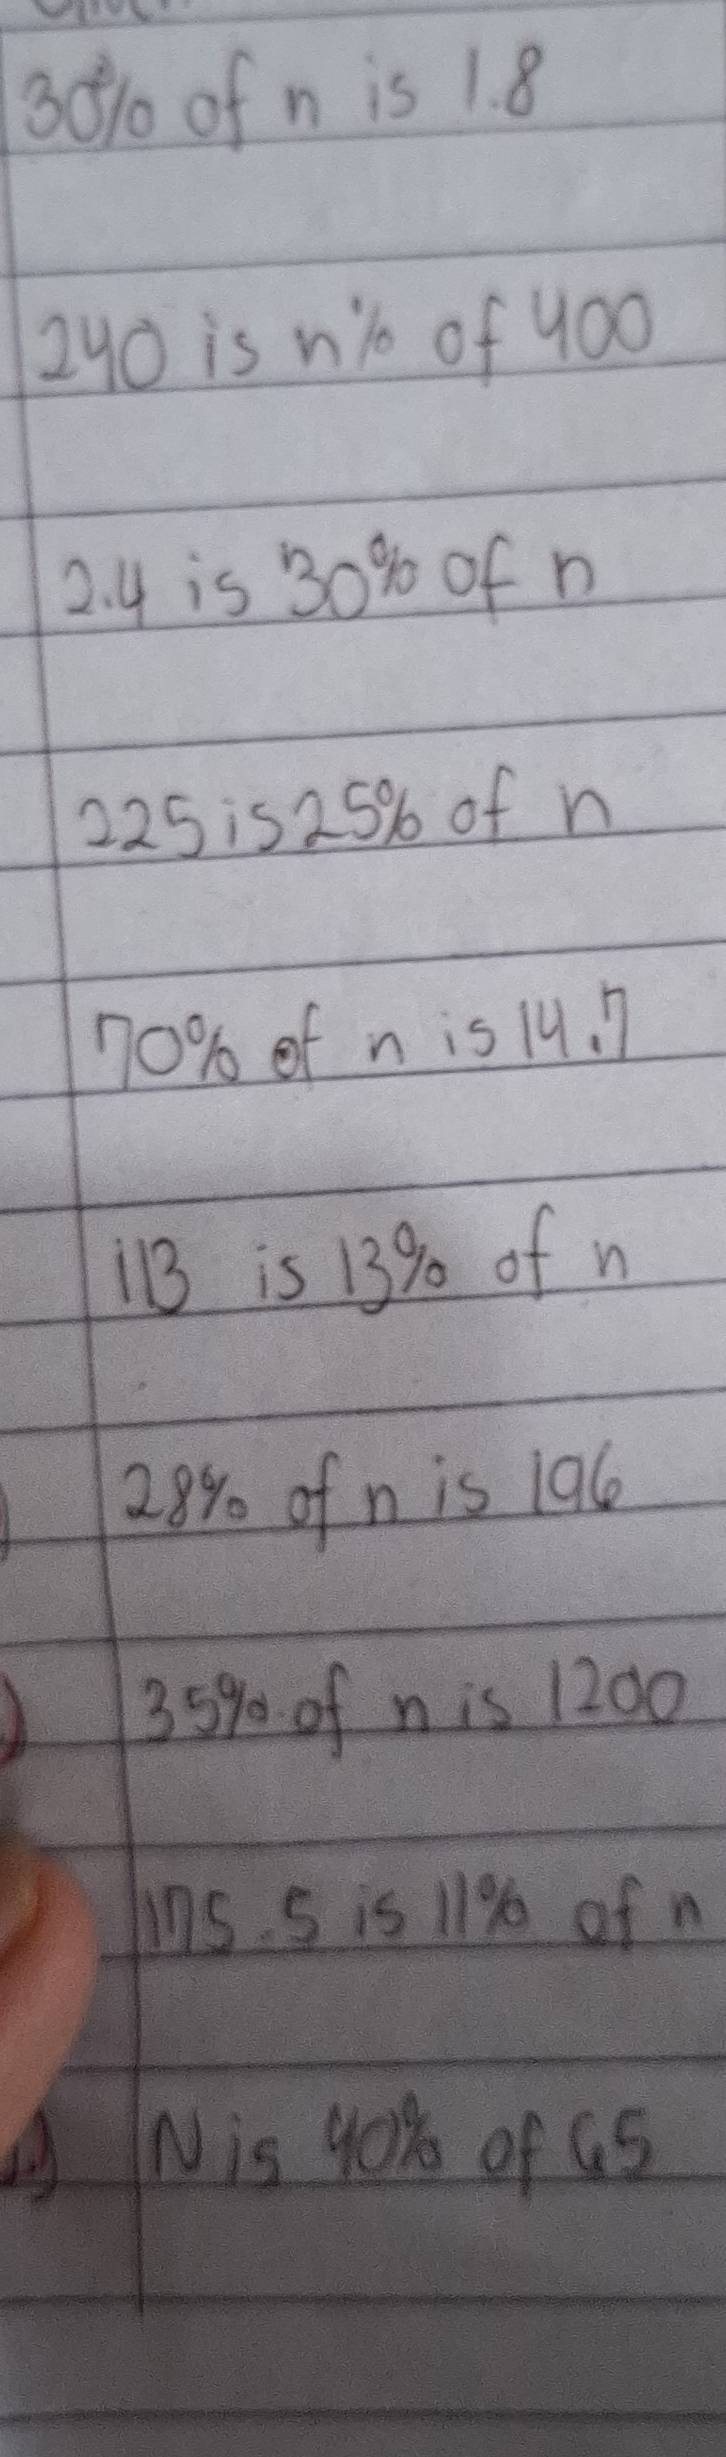 30% of n is 1.8
240 is n% of 400
2.4 is 30% of n
225 is 25% of n
70% of n is 14.7
113 is 13% of n
28% of n is 196
35% of n is 1200
175.5 is 11% of n
N is 40% of 65